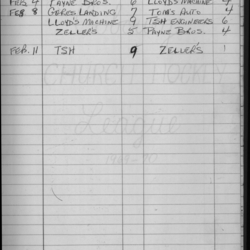 FEB 4 PAYNE BROS. 6 LLOYD'S MACHINE 4
FEB 8 GERES LANDING 7 TOM'S AUTO 4
LLOYD'S MACHINE 9 TSH ENGINEERS 6
ZELLER'S 5 PAYNE BROS. 4
FEB. 11 TSH 9 ZELLER'S 1
League